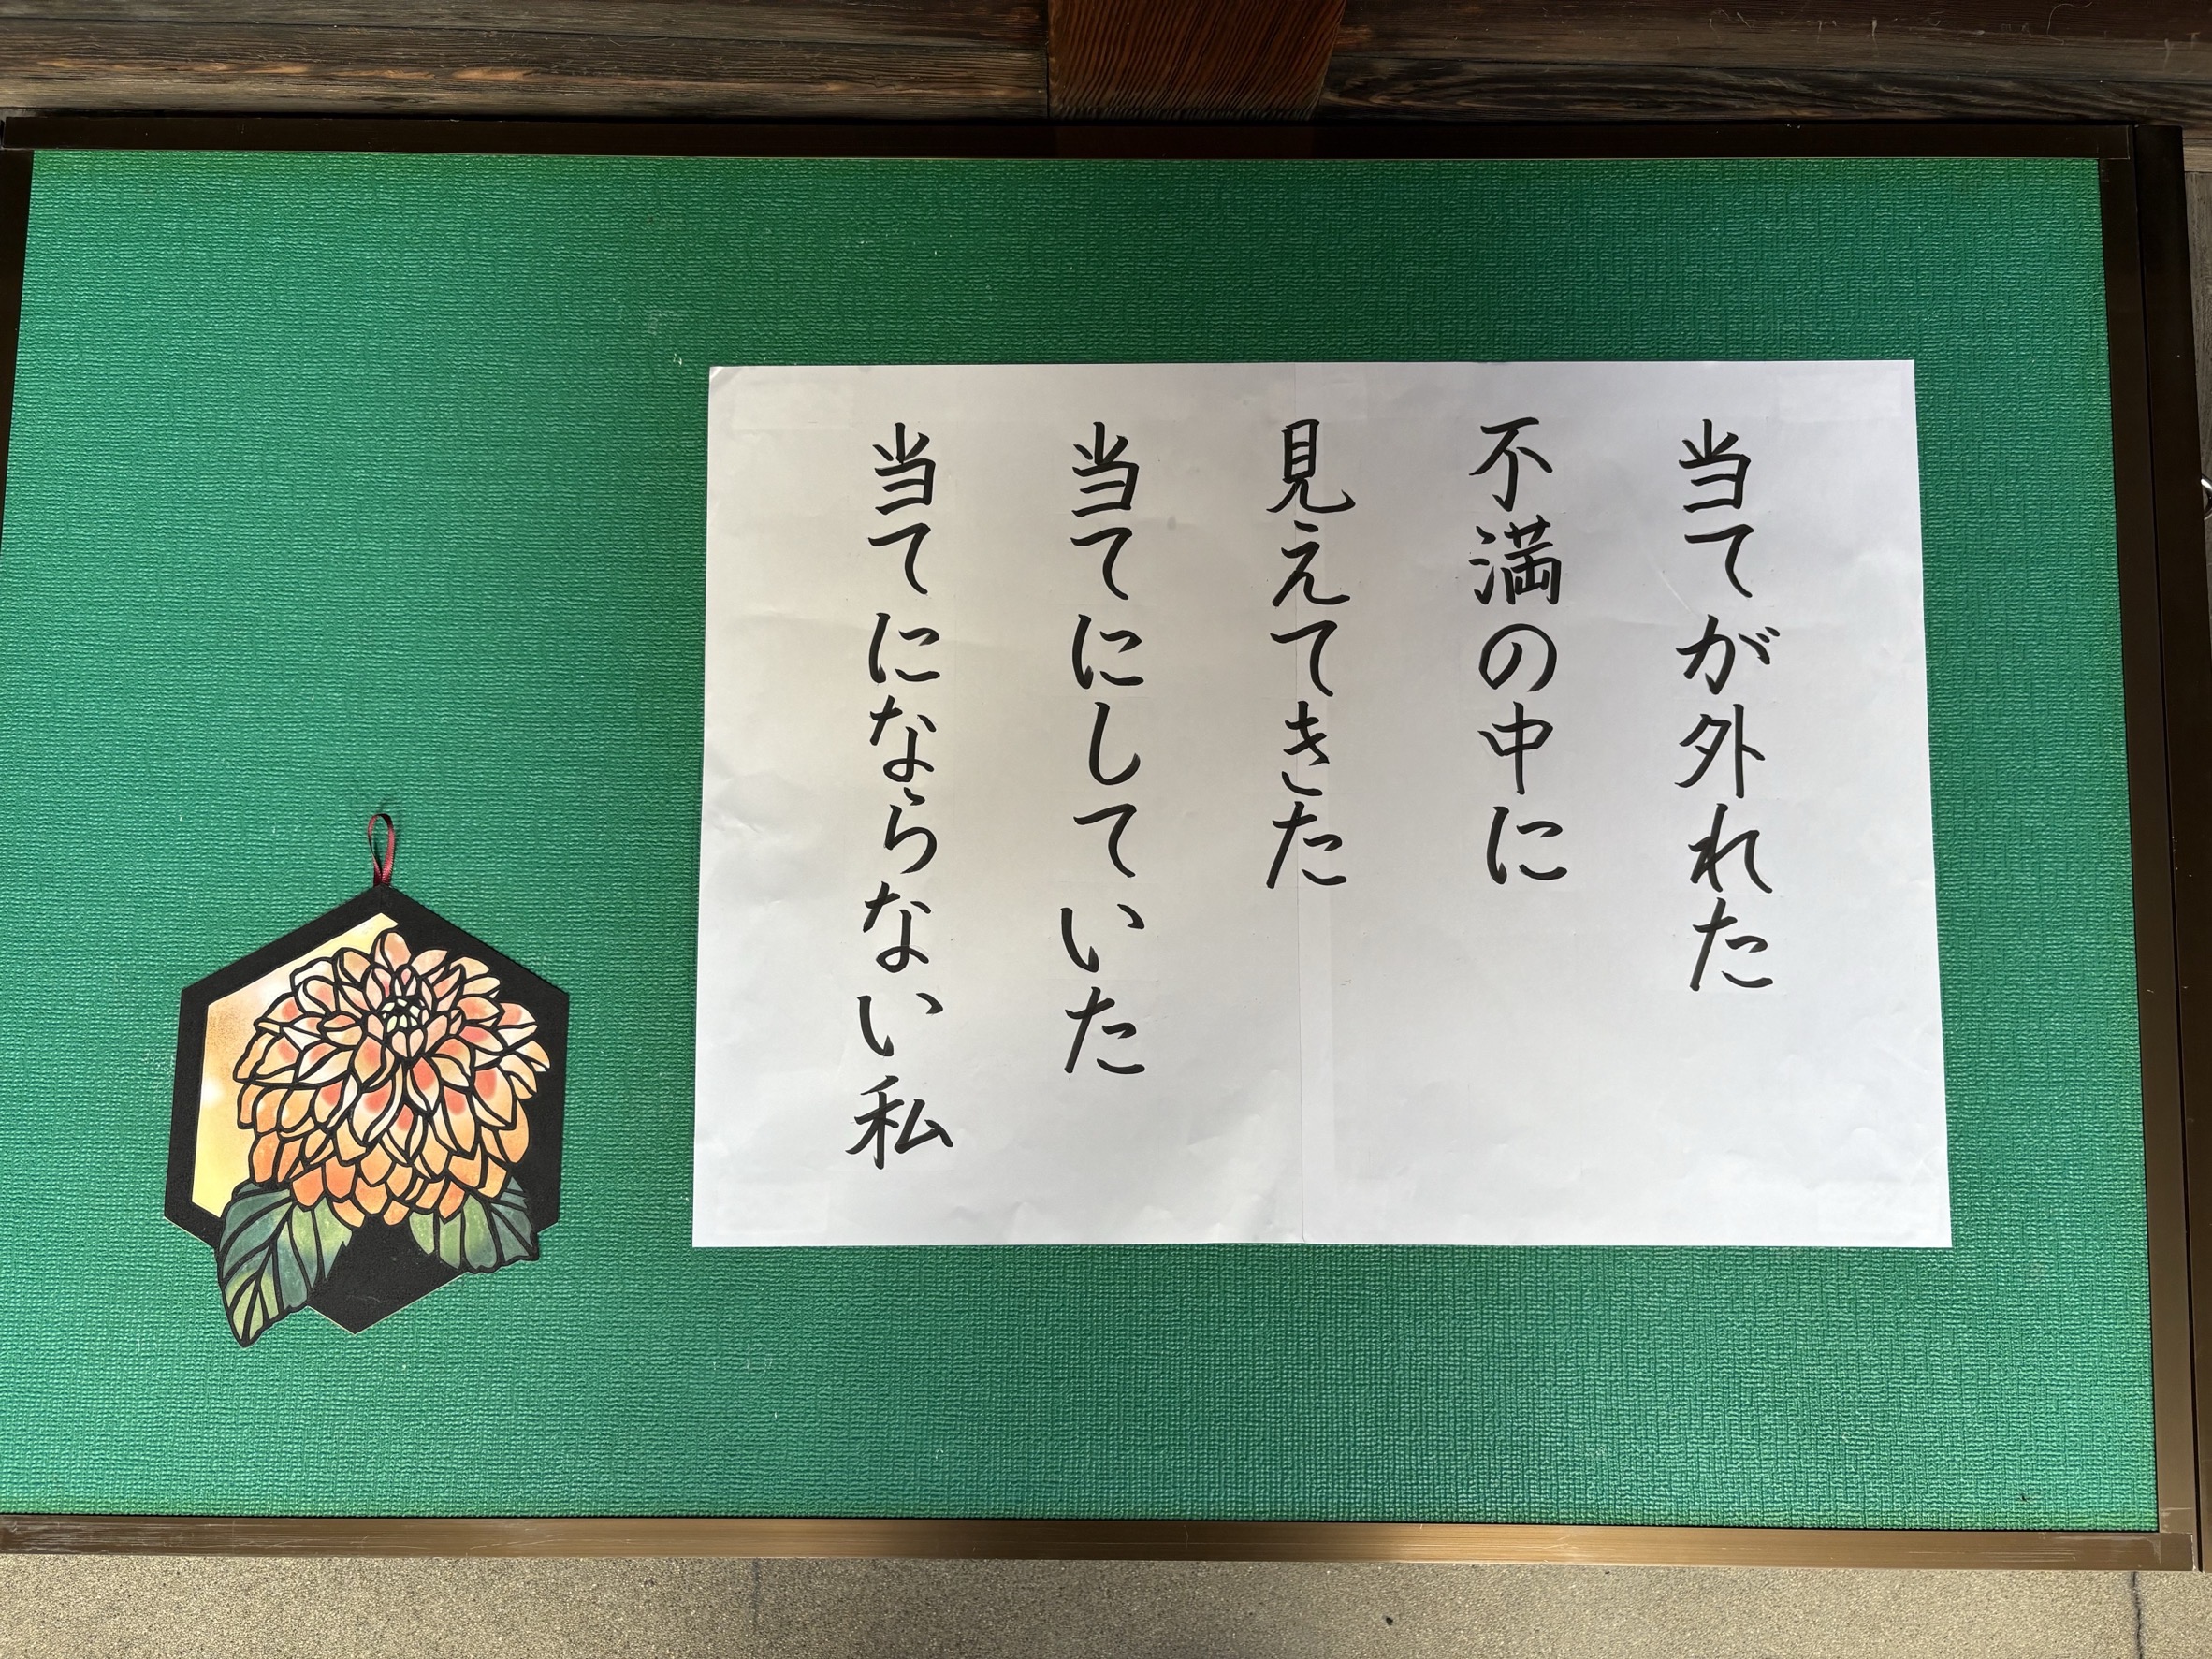 当てが外れた
不満の中に
見えてきた
当てにしていた
当てにならない私